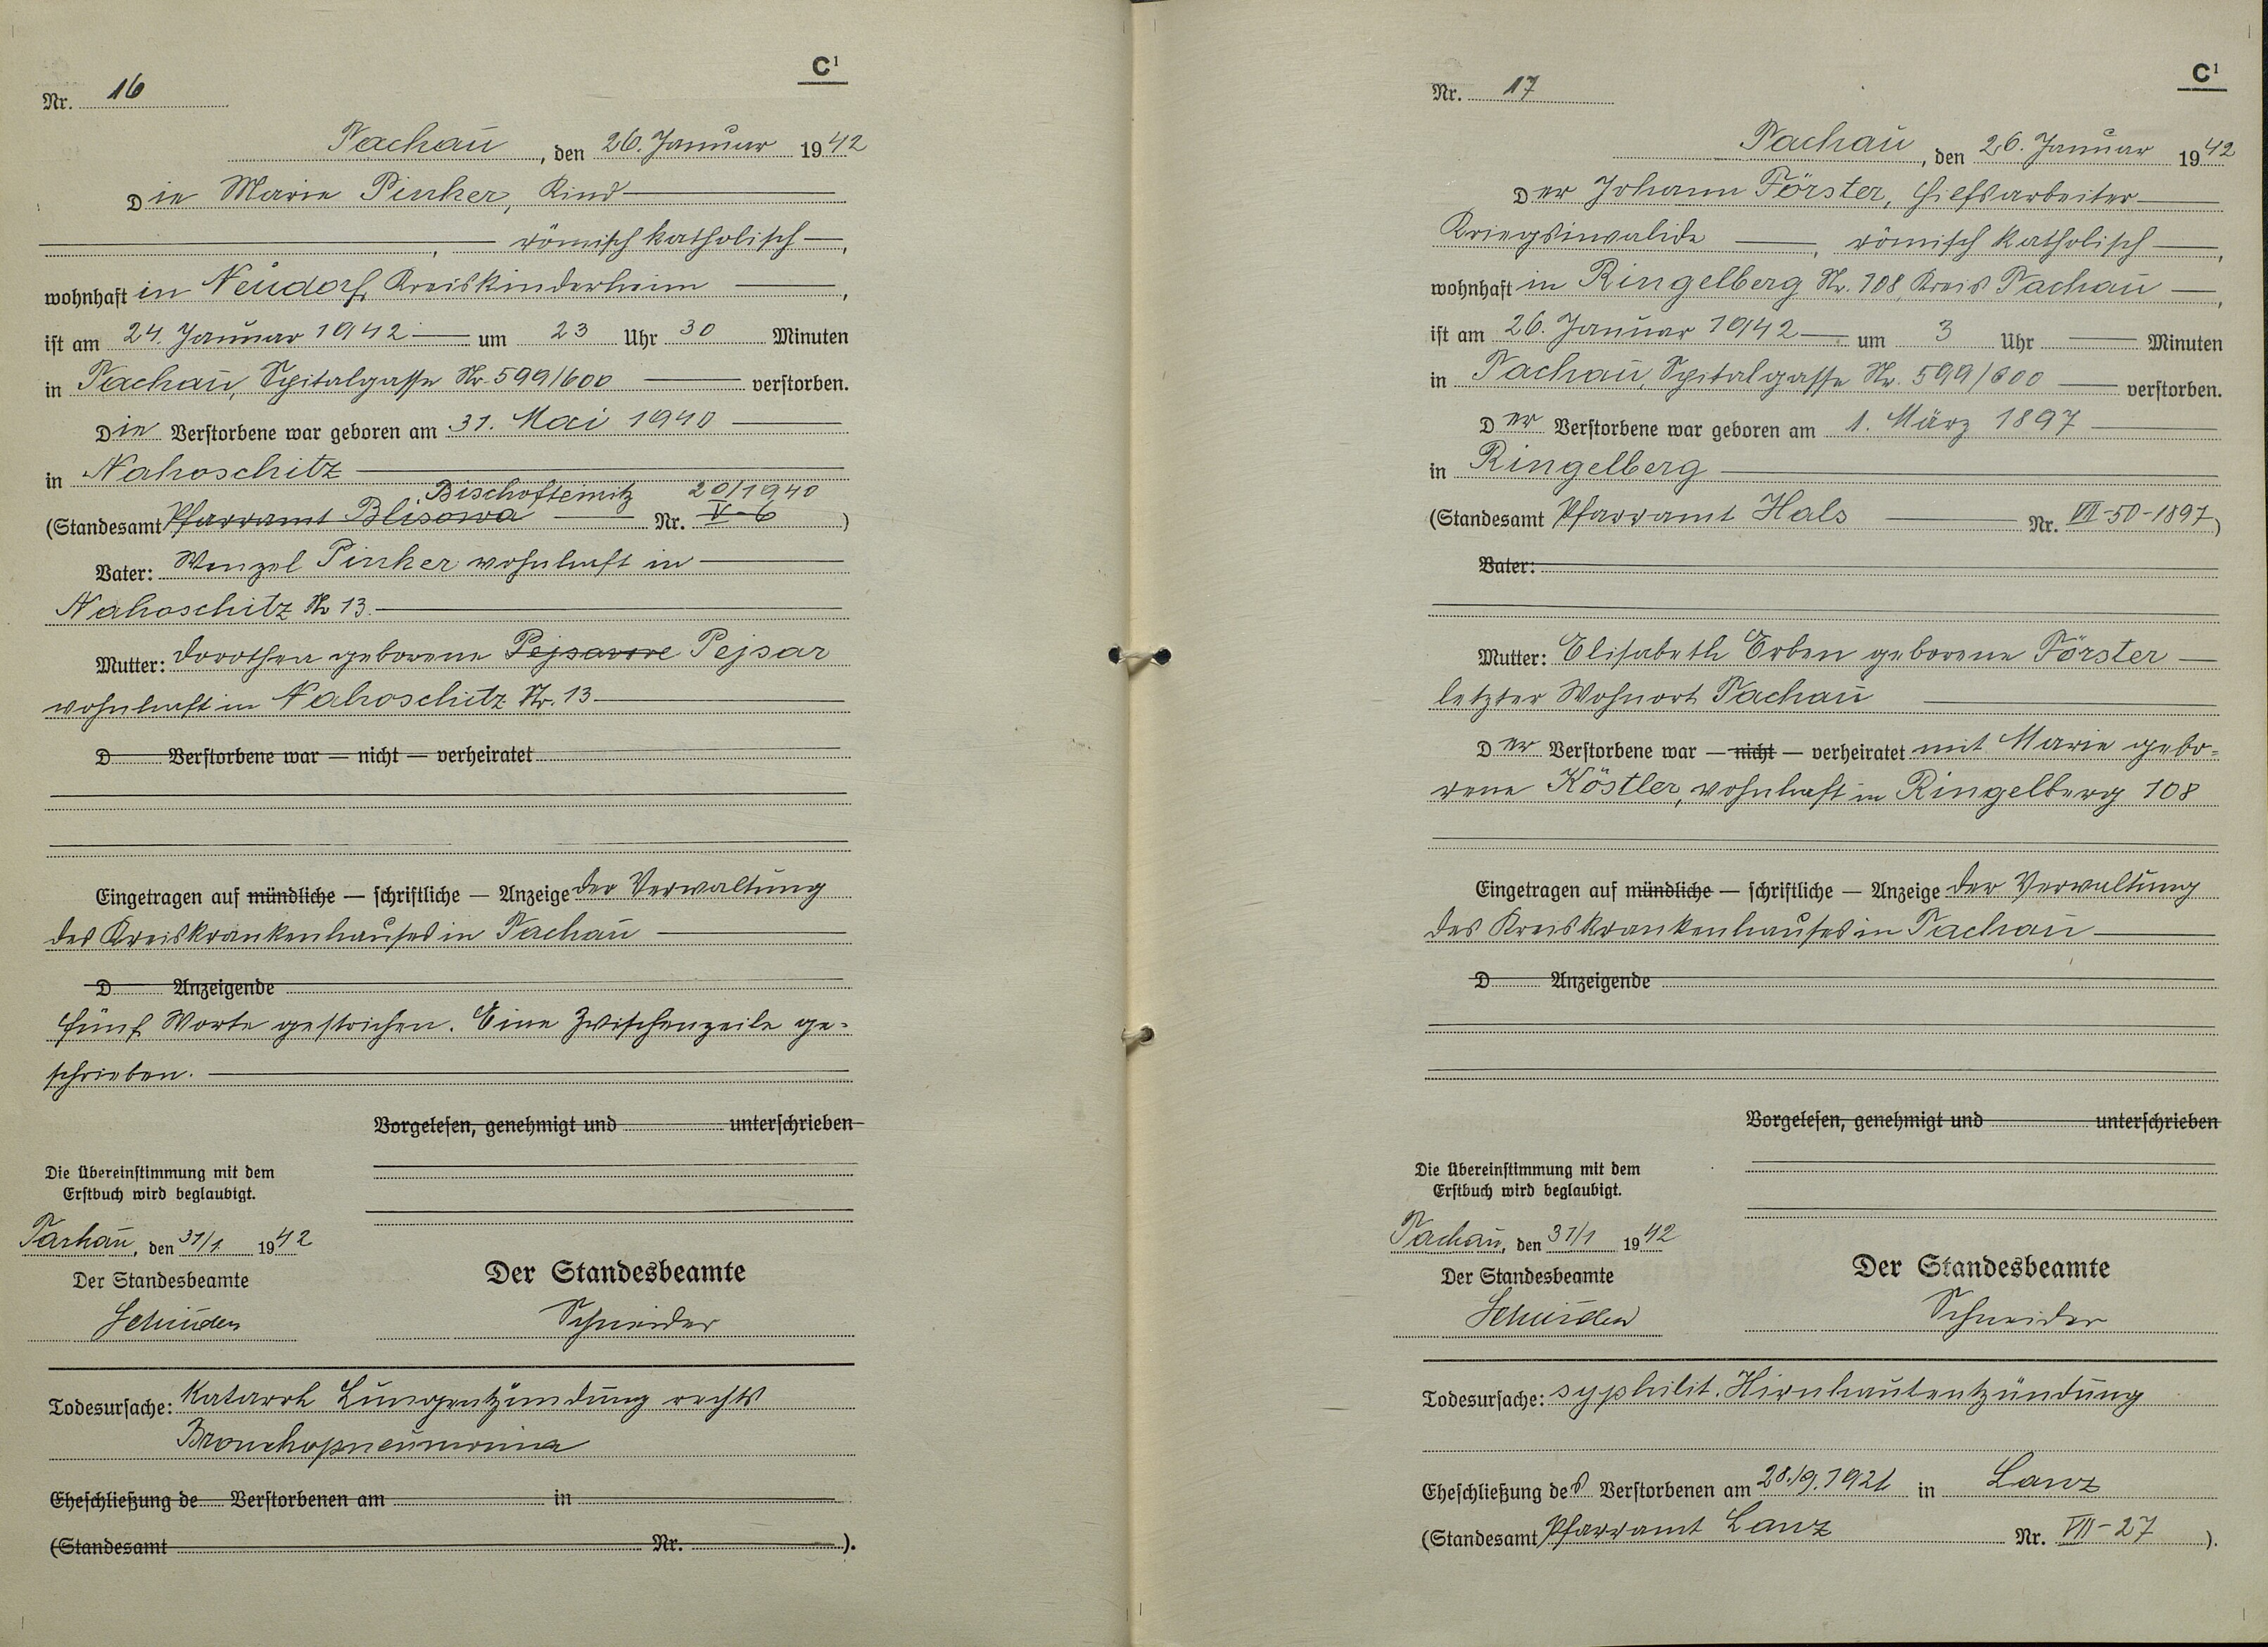 C¹
Nr. 16
Tachau, den 26. Januar 1942
Die Marie Pinker, Kind
römisch katholisch,
wohnhaft in Neudorf, Kreiskinderheim,
ist am 24. Januar 1942 um 23 Uhr 30 Minuten
in Tachau, Spitalgasse Nr. 599/600 verstorben.
Die Verstorbene war geboren am 31. Mai 1940
in Nahoschitz
Bischofteinitz 20/1940
(Standesamt Pfarramt Blisowa Nr. V-6)
Vater: Wenzel Pinker wohnhaft in
Nahoschitz Nr 13.
Mutter: Dorothea geborene Pejsarove Pejsar
wohnhaft in Nahoschitz Nr. 13
D Verstorbene war — nicht — verheiratet
Eingetragen auf mündliche — schriftliche — Anzeige der Verwaltung
des Kreiskrankenhauses in Tachau
D Anzeigende
Fünf Worte gestrichen. Eine Zwischenzeile ge-
schrieben.
Vorgelesen, genehmigt und unterschrieben
Die Übereinstimmung mit dem
Erstbuch wird beglaubigt.
Tachau, den 31/1 1942
Der Standesbeamte
Der Standesbeamte
Schneider
Schneider
Todesursache: Katarrh Lungentzündung rechts
Bronchopneumonia
Eheschließung de Verstorbenen am in
(Standesamt Nr. ).
C¹
Nr. 17
Tachau, den 26. Januar 1942
Der Johann Förster, Hielfsarbeiter
Kriegsinvalide, römisch katholisch,
wohnhaft in Ringelberg Nr. 108, Kreis Tachau,
ist am 26. Januar 1942 um 3 Uhr Minuten
in Tachau, Spitalgasse Nr. 599/600 verstorben.
Der Verstorbene war geboren am 1. März 1897
in Ringelberg
(Standesamt Pfarramt Hals Nr. VII-50-1897)
Vater:
Mutter: Elisabeth Erben geborene Förster
letzter Wohnort Tachau
Der Verstorbene war — nicht — verheiratet mit Marie gebo-
rene Köstler, wohnhaft in Ringelberg 108
Eingetragen auf mündliche — schriftliche — Anzeige der Verwaltung
des Kreiskrankenhauses in Tachau
D Anzeigende
Vorgelesen, genehmigt und unterschrieben
Die Übereinstimmung mit dem
Erstbuch wird beglaubigt.
Tachau, den 31/1 1942
Der Standesbeamte
Der Standesbeamte
Schneider
Schneider
Todesursache: syphilit. Hirnhautentzündung
Eheschließung des Verstorbenen am 28./9. 1921 in Lanz
(Standesamt Pfarramt Lanz Nr. VII-27).